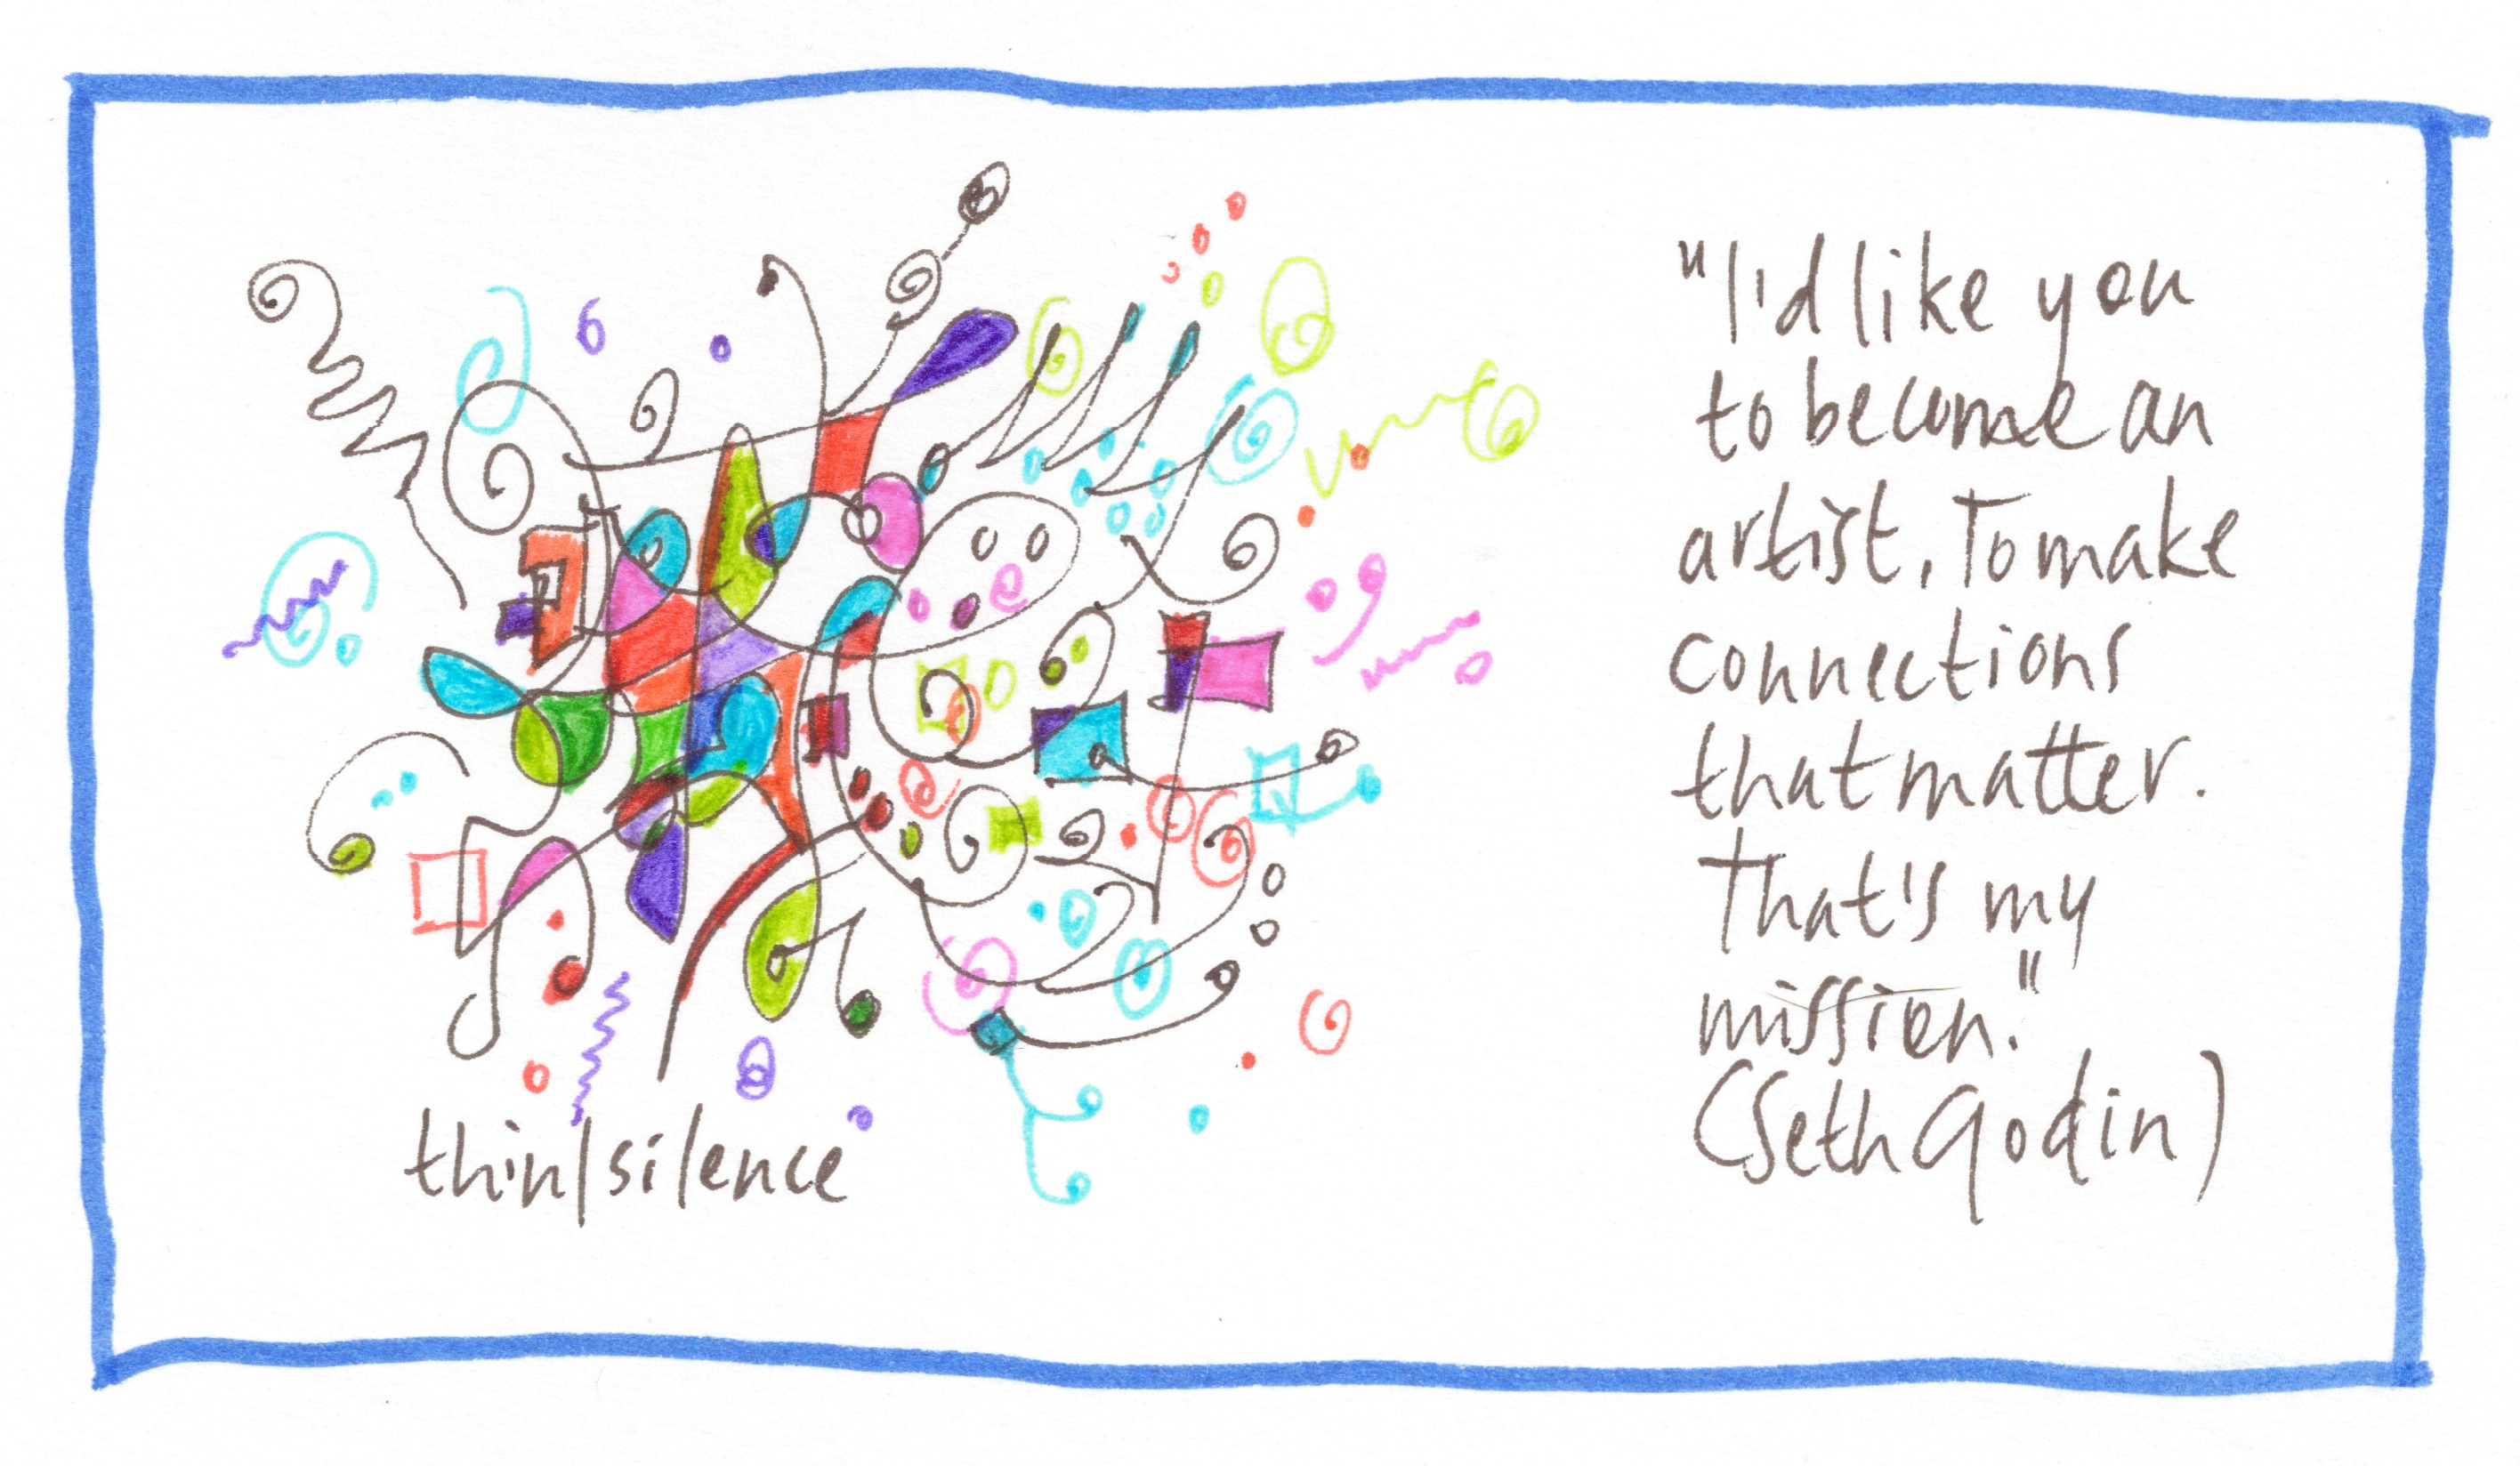 "I'd like you
to become an
artist. To make
connections
that matter.
That's my
mission."
(Seth Godin)
thin|silence